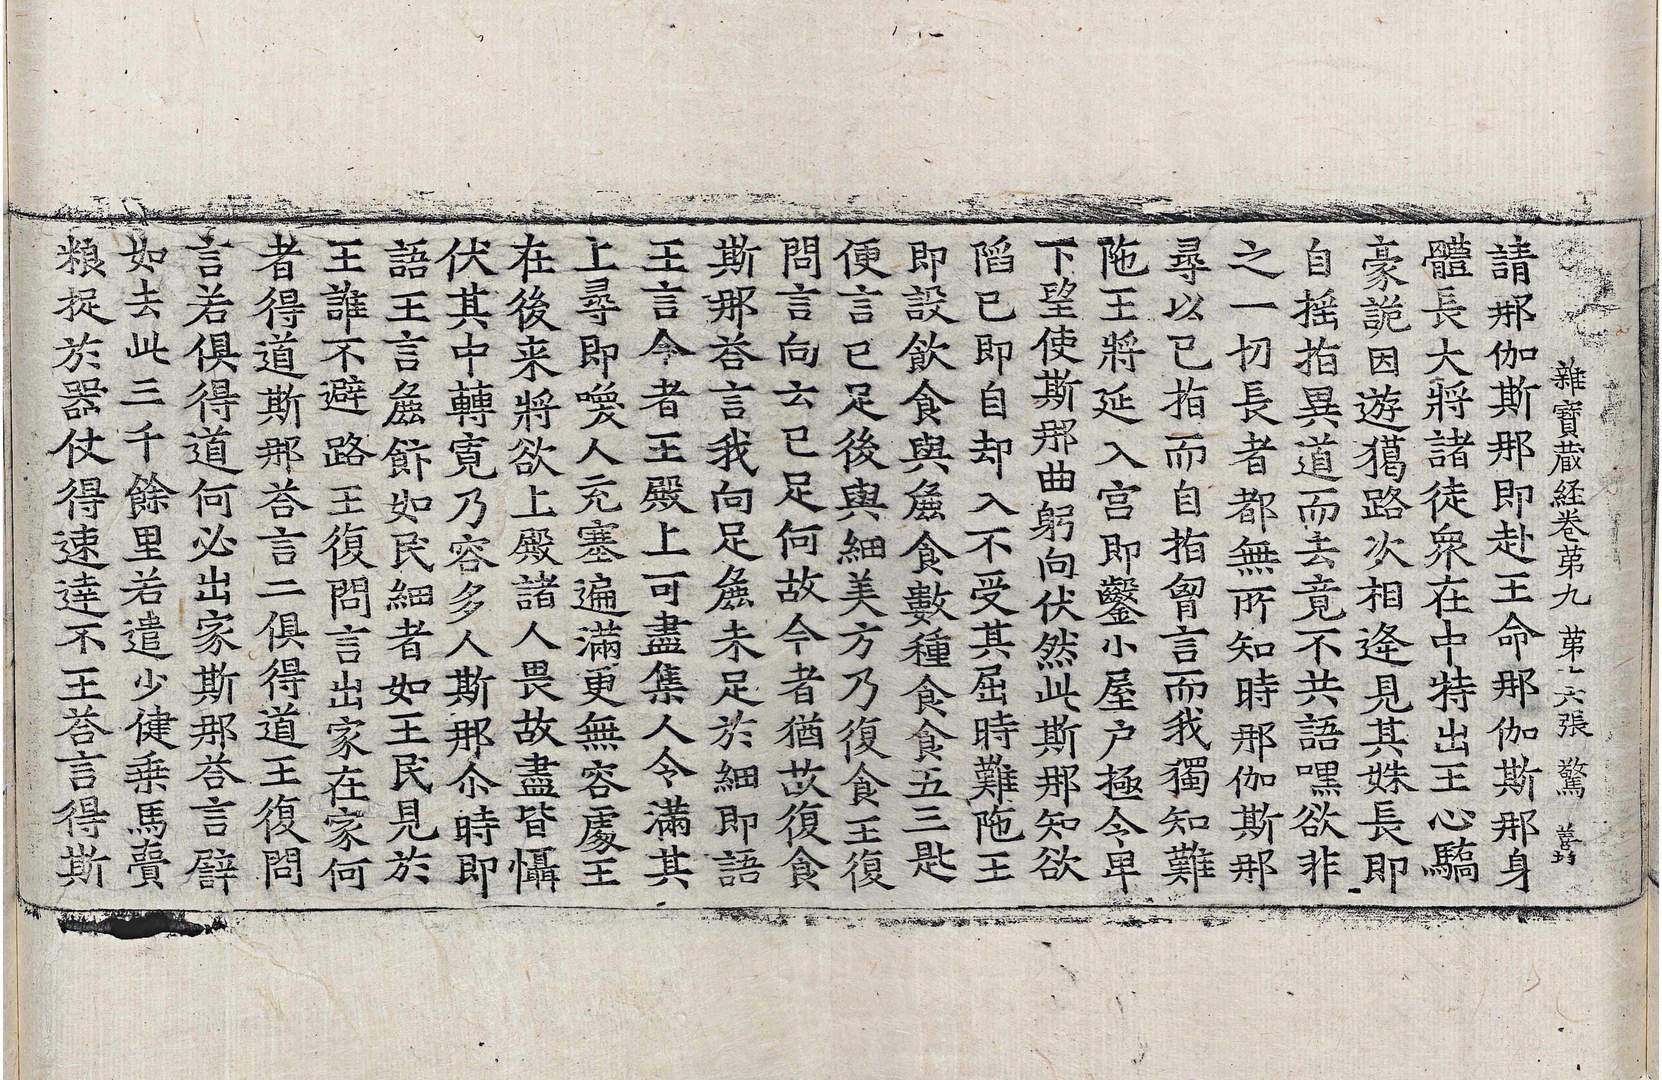 雜寶蔵経卷苐九 苐十六張 驚 善才
請那伽斯那即赴王命那伽斯那身
體長大將諸徒衆在中特出王心驕
豪詭因遊獦路次相逄見其姝長即
自摇指異道而去竟不共語嘿欲非
之一切長者都無所知時那伽斯那
尋以已指而自指胷言而我獨知難
陁王將延入宫即鑿小屋户極令卑
下望使斯那曲躬向伏然此斯那知欲
䧟已即自却入不受其屈時難陁王
即設飲食與麁食數種食食五三匙
便言已足後與細美方乃復食王復
問言向云已足何故今者猶故復食
斯那荅言我向足麁未足於細即語
王言今者王殿上可盡集人令滿其
上尋即喚人充塞遍滿更無容處王
在後来將欲上殿諸人畏故盡皆懾
伏其中轉寛乃容多人斯那尒時即
語王言麁飰如民細者如王民見於
王誰不避路王復問言出家在家何
者得道斯那荅言二俱得道王復問
言若俱得道何必出家斯那荅言譬
如去此三千餘里若遣少健乗馬賷
粮捉於器仗得速達不王荅言得斯